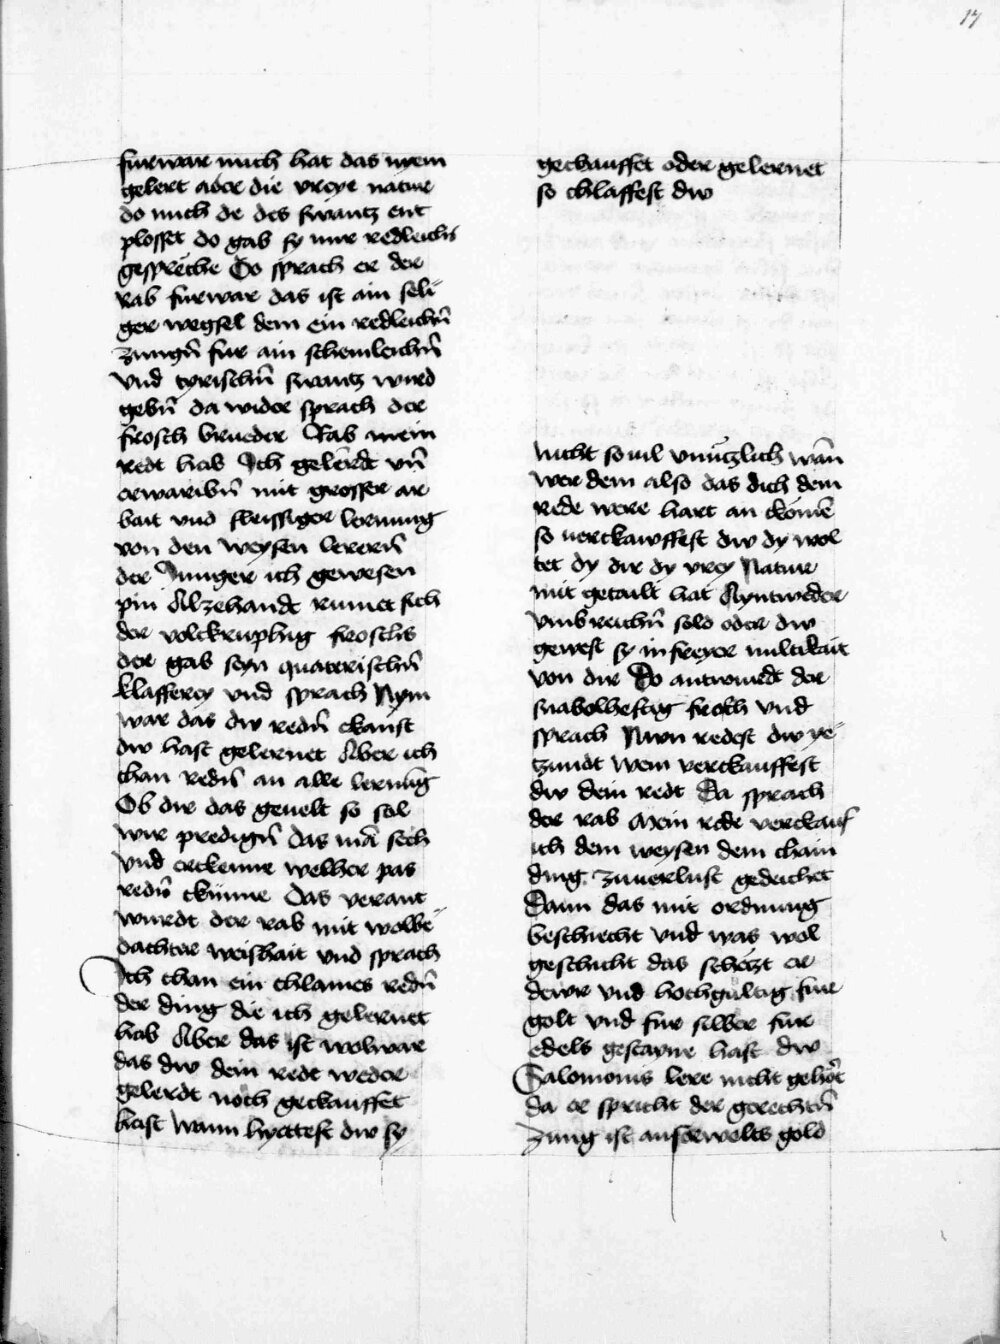 17
furwar mich hat das mein
gelert ader die vreye natur
do mich de des swantz ent
plosset do gab sy mir redleichs
gespreche Do sprach er der
rab furwar das ist ain seli
ger wegsel dem ein redleichn̄
zungn̄ fur ain schemleichn̄
vnd tyrischn̄ swantz wurd
gebn̄ da wider sprach der
frosch brueder Rab mein
redt hab Ich gelerdt vn̄
erwaribn̄ mit grosser ar
bait vnd fleissiger lernung
von den weysen lerern̄
der Junger ich gewesen
pin Alzehandt rumet sich
der volckruphig froschs
der gab seyn quaterischn̄
klafferey vnd sprach Nym
war das dw redn̄ ckanst
dw hast gelernet Aber ich
chan redn̄ an alle lernūg
Ob dir das geuelt so sol
wir predign̄ das mā sech
vnd erckenne welher pas
redn̄ ckunne Das verant
wurdt der rab mit wolbe
dachter weishait vnd sprach
Ich chan ein chlaines redn̄
der ding die ich gelernet
hab Aber das ist wolwar
das dw dein redt weder
gelerdt noch geckauffet
hast Wann hyettest dw sy
geckauffet oder gelernet
so chlaffest dw
nicht souil vnnutzlich wān
wer dem also das dich dem
rede were hart an ckomē
so uerckawffest dw dy wol
tet dy dir dy vrey Natur
mit getailt hat Ayntweder
vmb reichn̄ sold oder dw
gewest sy in freyer miltikait
von dir Do antwurdt der
snabelheftig frosch vnd
sprach Nwn redest dw ye
tzundt Wem verckauffest
dw dein redt Da sprach
der rab Mein rede verckauf
ich dem weysen dem chain
ding zuuerlust gedeichet
Dann das mit ordnung
beschiecht vnd was wol
geschicht das schetzt er
dewr vnd hochgultig fur
golt vnd fur silber fur
edels gestayne hast dw
Salomonis lere nicht gehort
da er spricht der gerechtn̄
zung ist ausderwelts gold